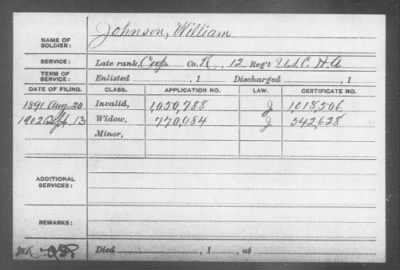 NAME OF SOLDIER: Johnson, William
SERVICE: Late rank, Corp Co. K, 12 Reg't U.S.C. H.A.
TERM OF SERVICE: Enlisted , 1 Discharged , 1
DATE OF FILING. CLASS. APPLICATION NO. LAW. CERTIFICATE NO.
1891 Aug 20 Invalid, 1,050,788 J 1,018,506
1902 Sept 13 Widow, 770,084 J 542,628
Minor,
ADDITIONAL SERVICES:
REMARKS:
Died , 1 , at